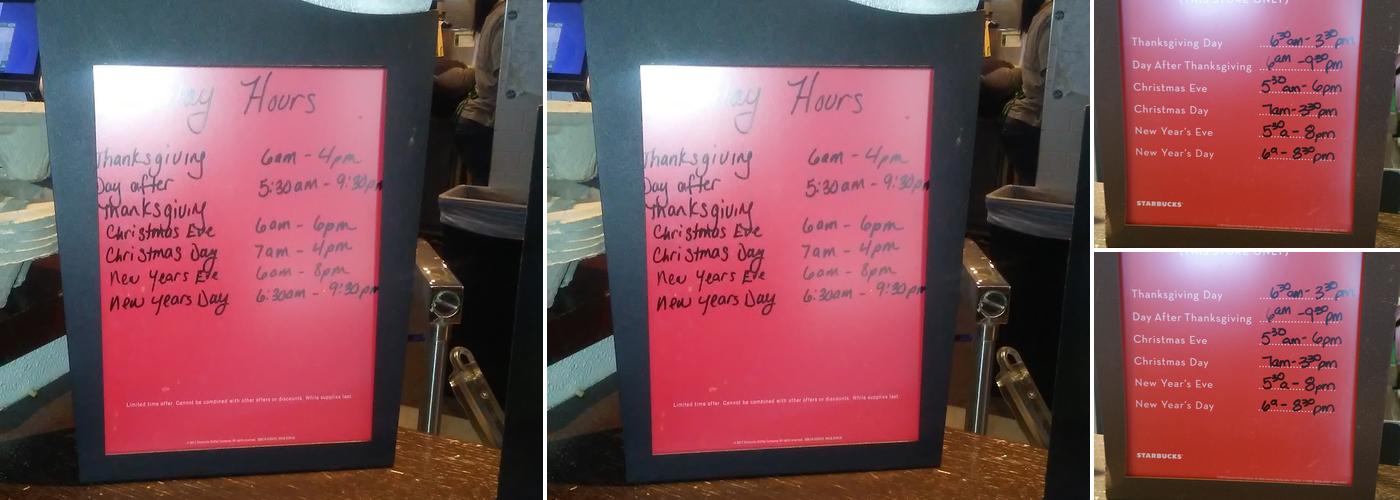 Hours
Thanksgiving 6am - 4pm
Day after 5:30am - 9:30pm
Thanksgiving
Christmas Eve 6am - 6pm
Christmas Day 7am - 4pm
New Years Eve 6am - 8pm
New Years Day 6:30am - 9:30pm
Limited time offer. Cannot be combined with other offers or discounts. While supplies last.
Hours
Thanksgiving 6am - 4pm
Day after 5:30am - 9:30pm
Thanksgiving
Christmas Eve 6am - 6pm
Christmas Day 7am - 4pm
New Years Eve 6am - 8pm
New Years Day 6:30am - 9:30pm
Limited time offer. Cannot be combined with other offers or discounts. While supplies last.
(THIS STORE ONLY)
Thanksgiving Day 630am - 330pm
Day After Thanksgiving 6am - 930pm
Christmas Eve 530am - 6pm
Christmas Day 7am - 330pm
New Year's Eve 530a - 8pm
New Year's Day 6a - 830pm
STARBUCKS
(THIS STORE ONLY)
Thanksgiving Day 630am - 330pm
Day After Thanksgiving 6am - 930pm
Christmas Eve 530am - 6pm
Christmas Day 7am - 330pm
New Year's Eve 530a - 8pm
New Year's Day 6a - 830pm
STARBUCKS